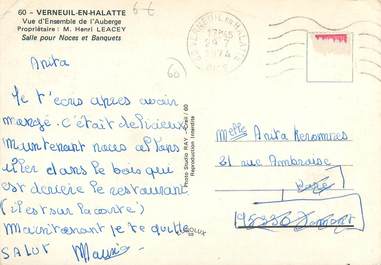 60 - VERNEUIL-EN-HALATTE
Vue d'Ensemble de l'Auberge
Propriétaire : M. Henri LEACEY
Salle pour Noces et Banquets
60
Anita
Je t'écris après avoir
mangé. C'était délicieux
Maintenant nous allons
jouer dans le bois qui
est derière le restaurant
(il est sur la carte)
Maintenant je te quitte
SALUT
Photo Studio RAY - Creil / 60
Reproduction Interdite
VERNEUIL EN HALATTE
Melle Anita
21 rue Ambroise
Paré
95330 Domont